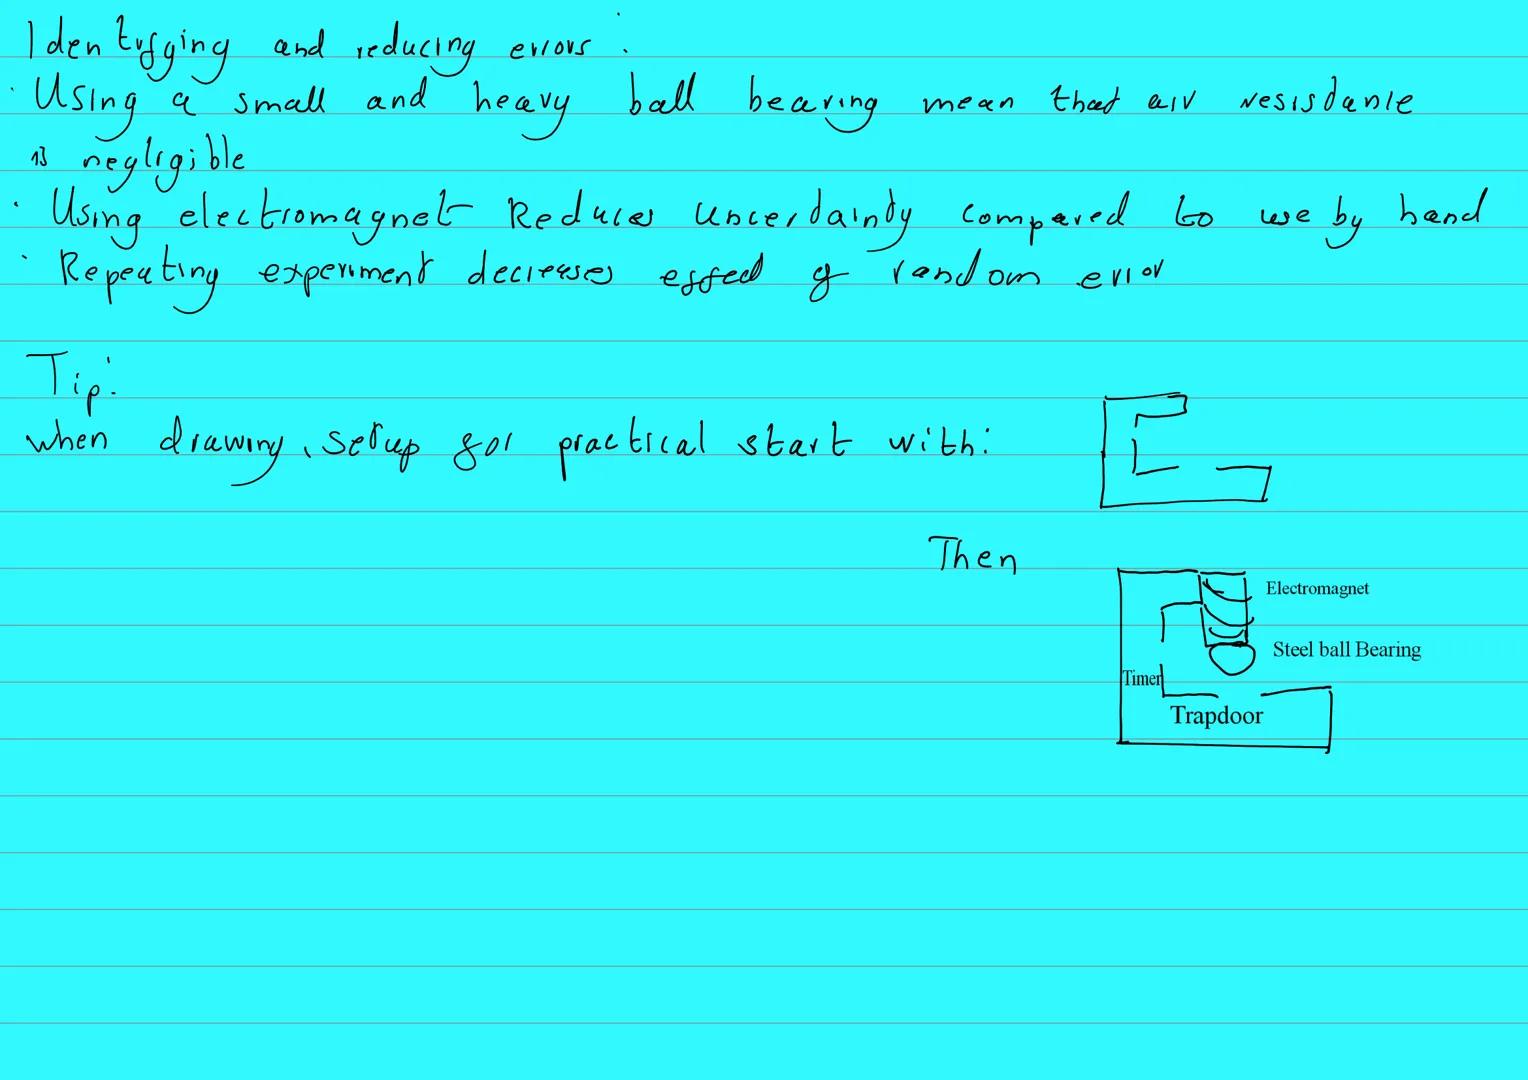 Identifying and reducing errors :
· Using a small and heavy ball bearing mean that air resistance
is negligible
· Using electromagnet Reduces Uncertainty compared to use by hand
· Repeating experiment decreases effect of random error
Tip:
when drawing setup for practical start with:
Then
Electromagnet
Steel ball Bearing
Timer
Trapdoor